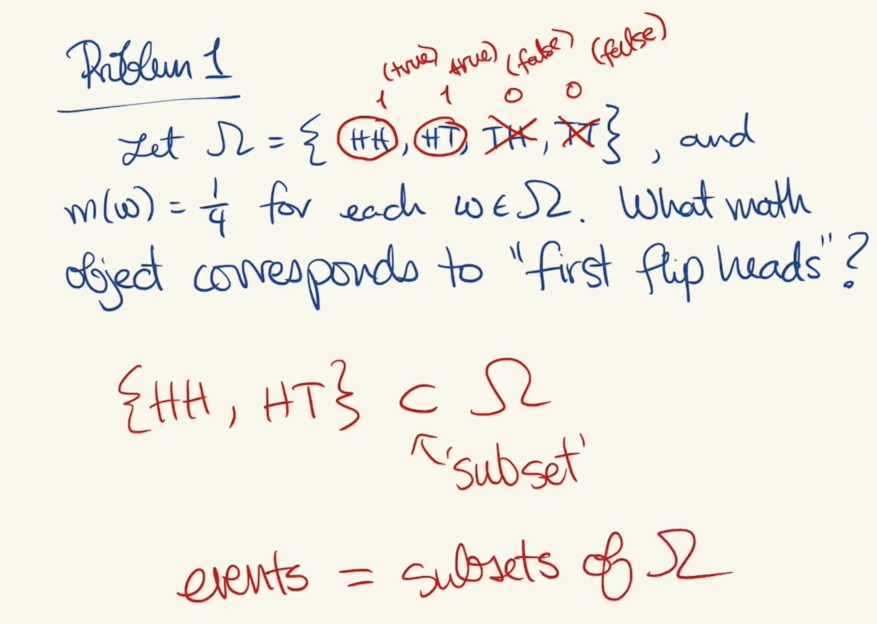 Problem 1
(true) (true) (false) (false)
1 1 0 0
Let Ω = { HH, HT, TH, TT }, and
m(ω) = 1/4 for each ω ∈ Ω. What math
object corresponds to "first flip heads"?
{HH, HT} ⊂ Ω
↖ 'subset'
events = subsets of Ω